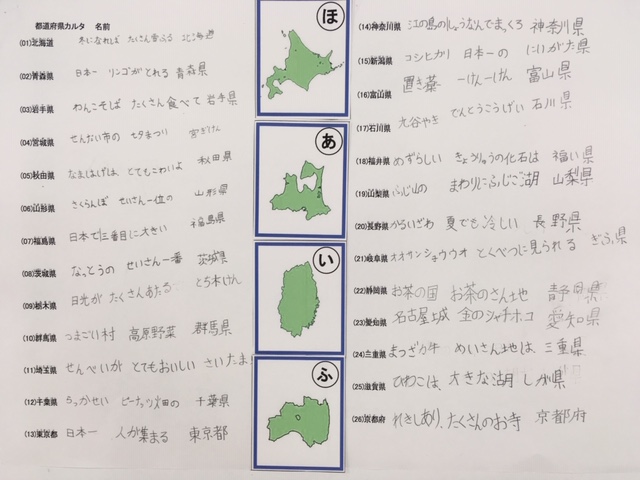 都道府県カルタ 名前
(01)北海道 冬になれば たくさん雪ふる 北海道
(02)青森県 日本一 リンゴがとれる 青森県
(03)岩手県 わんこそば たくさん食べて 岩手県
(04)宮城県 せんだい市の 七夕まつり 宮ぎけん
(05)秋田県 なまはげは、とてもこわいよ 秋田県
(06)山形県 さくらんぼ せいさん一位の 山形県
(07)福島県 日本で三番目に大きい 福島県
(08)茨城県 なっとうの せいさん一番 茨城県
(09)栃木県 日光が たくさんあたる とち木けん
(10)群馬県 つまごい村 高原野菜 群馬県
(11)埼玉県 せんべいが とてもおいしい さいたま
(12)千葉県 らっかせい ピーナッツ畑の 千葉県
(13)東京都 日本一 人が集まる 東京都
ほ
あ
い
ふ
(14)神奈川県 江の島のしょうなんでまっくろ 神奈川県
(15)新潟県 コシヒカリ 日本一の にいがた県
(16)富山県 置き薬 一けん一けん 富山県
(17)石川県 九谷やき でんとうこうげい 石川県
(18)福井県 めずらしい きょうりゅうの化石は 福い県
(19)山梨県 ふじ山の まわりにふじご湖 山梨県
(20)長野県 かるいざわ 夏でも冷しい 長野県
(21)岐阜県 オオサンショウウオ とくべつに見られる ぎふ県
(22)静岡県 お茶の国 お茶のさん地 静岡県
(23)愛知県 名古屋城 金のシャチホコ 愛知県
(24)三重県 まつざか牛 めいさん地は、三重県
(25)滋賀県 びわこは、大きな湖 しが県
(26)京都府 れきしあり、たくさんのお寺 京都府